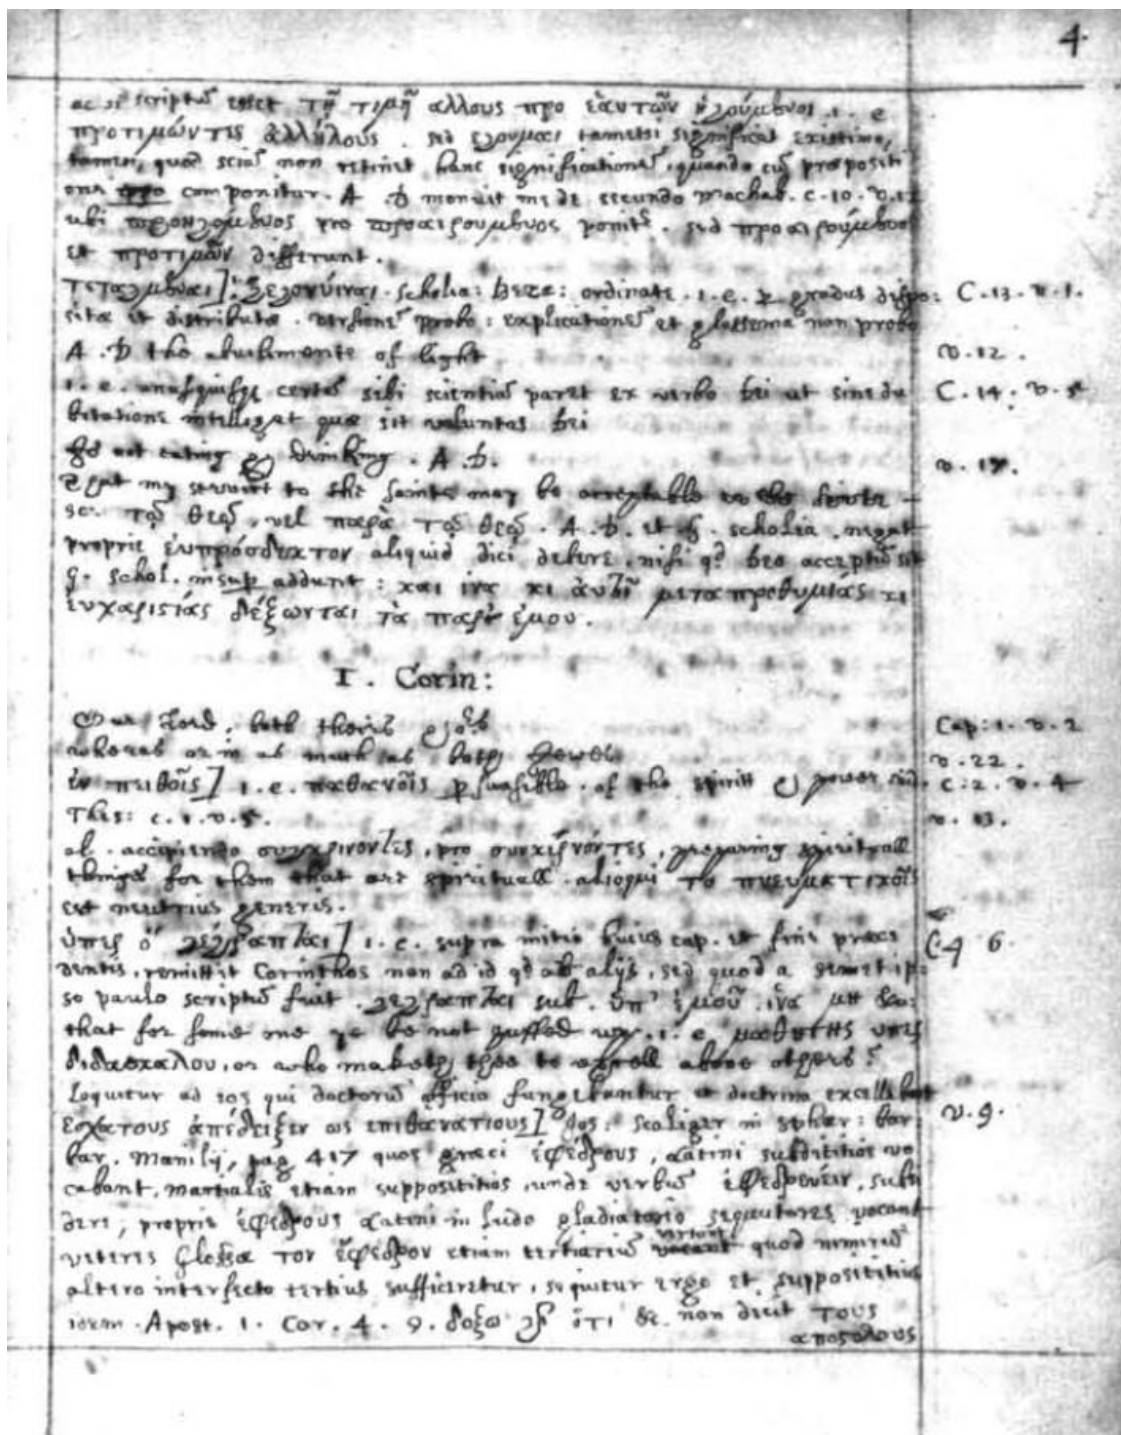 4.
ac si scriptū esset τῇ τιμῇ αλλους προ ἑαυτῶν ἡγούμενοι .1. e
προτιμῶντες ἀλλήλους . sed ηγουμαι tametsi significat existimo,
tamen, quod sciā non retinet hanc significationē, quando cū præpositi
one προ componitur. A . D monuit me de secundo Machab. c. 10. v. 12
ubi προηγουμενος pro προαιρουμενος ponitr . sed προαιρούμενος
et προτιμῶν differunt.
τεταγμέναι] scholia: Beza: ordinate .1. e. p gradus dispo: C. 13. v. 1.
sitæ et distributæ . versionē probo: explicationē et glossema non probo
A . D the abilements of light v. 12 .
1. e. unusquisq certā sibi scientiā paret ex verbo Dei ut sine du C. 14. v. 5
bitatione intelligat quæ sit voluntas Dei
not eating & drinking . A. D. v. 17.
That my service to the saints may be acceptable
sc. τῷ θεῷ, vel παρὰ τῷ θεῷ . A. D. et G. scholia . negat
proprie ἐυπρόσδεκτον aliquid dici debere, nisi qd Deo acceptū sit
G. schol. insup addunt: και ινα κι ἀυτοὶ μετα προθυμίας κι
ἐυχαριστίας δέξωνται τὰ παρ' ἐμου.
1. Corin:
Our Lord, both theirs & ors Cap: 1. v. 2
whereas or in as much as both Jewes v. 22.
ἐν πειθοῖς] 1. e. πιθανοῖς psuasible . of the spirit & power C: 2. v. 4
Thes: c. 1. v. 5. v. 13.
al. accipiendo συγκρινοντες, pro συγκιρνόντες, preparing spirituall
things for them that are spirituall . alioqui το πνευματικοῖς
est neutrius generis.
ὑπερ ὃ γέγραπται] 1. e. supra initio huius cap. et fine præce C. 4 6.
dentis, remittit Corinthos non ad id qd ab alijs, sed quod a semetip:
so paulo scriptū fuit . γεγραπται sub. ὑπ' ἐμοῦ . ἵνα μη &c:
that for some one ye be not puffed up . 1. e μαθητης υπερ
διδασκαλου, or who maketh thee to excell above others?
Loquitur ad eos qui doctorū officio fungebantur et doctrina excellebat
εσχατους ἀπέδειξεν ως επιθανατιους] Jos: Scaliger in sphær: bar v. 9.
bar. Manilij, pag 417 quos græci ἐφέδρους, Latini subdititios vo
cabant, Martialis etiam supposititios, unde verbū ἐφεδρεύειν, subsi
dere, proprie ἐφεδρους Latini in ludo gladiatorio sequutores vocant
veteres Glossæ τον ἔφεδρον etiam tertiariū vertunt quod nimirū
altero interfecto tertius sufficeretur, sequitur ergo et supposititius
Apost. 1. Cor. 4. 9. δοξω γδ ὅτι &c. non dicit τους
αποστολους